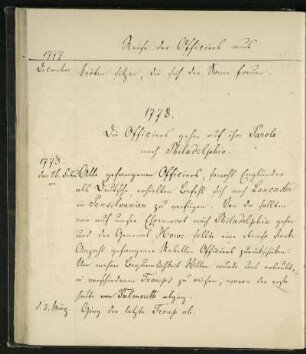 Reise der Officiers aus
1777
December sitzen, die sich der Sonne freuen.
1778.
Die Officiers gehen auf ihr Parole
nach Philadelphia.
1778.
Alle gefangenen Officiers, sowohl Engländer
als Deutsche, erhielten Befehl sich nach Lancaster
in Pensilvanien zu verfügen. Von da sollten
wir auf unser Ehrenwort nach Philadelphia gehen
und der General Howe sollte eine gleiche
Anzahl gefangener Rebellen Officiers zurückschicken.
Um mehrer Bequemlichkeit Willen wurde uns erlaubt,
in verschiedenen Troups zu reisen, wovon der erste
heute von Falmouth abging.
d. 2. März. Ging der letzte Troup ab.